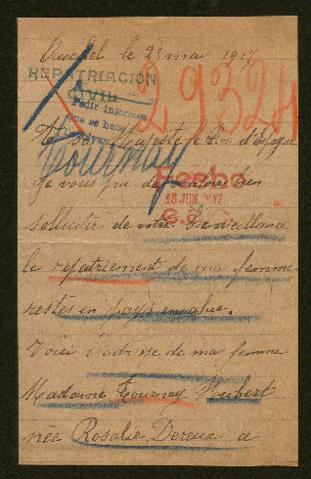 Auchel le 29 mai 1917
REPATRIACIÓN
Civil
Pedir informes
que se hace
29324
A sa Majesté le Roi d'Espagne
Tournay
Je vous prie de vouloir bien
Fecha
13 JUN. 1917
solliciter de votre bienveillance
le repatriement de ma femme
restés en pays envahie.
Voici l'adresse de ma femme
Madame Tournay Hubert
née Rosalie Dereux a